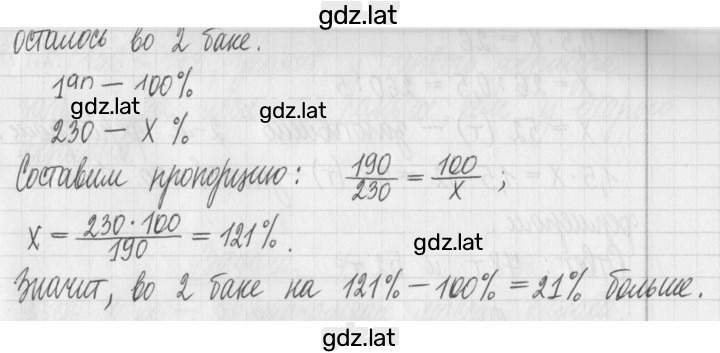 gdz.lat
осталось во 2 баке.
190 — 100%
gdz.lat
gdz.lat
230 — X %
Составим пропорцию: 190/230 = 100/X ;
X = 230·100/190 = 121%.
gdz.lat
Значит, во 2 баке на 121% – 100% = 21% больше.
gdz.lat